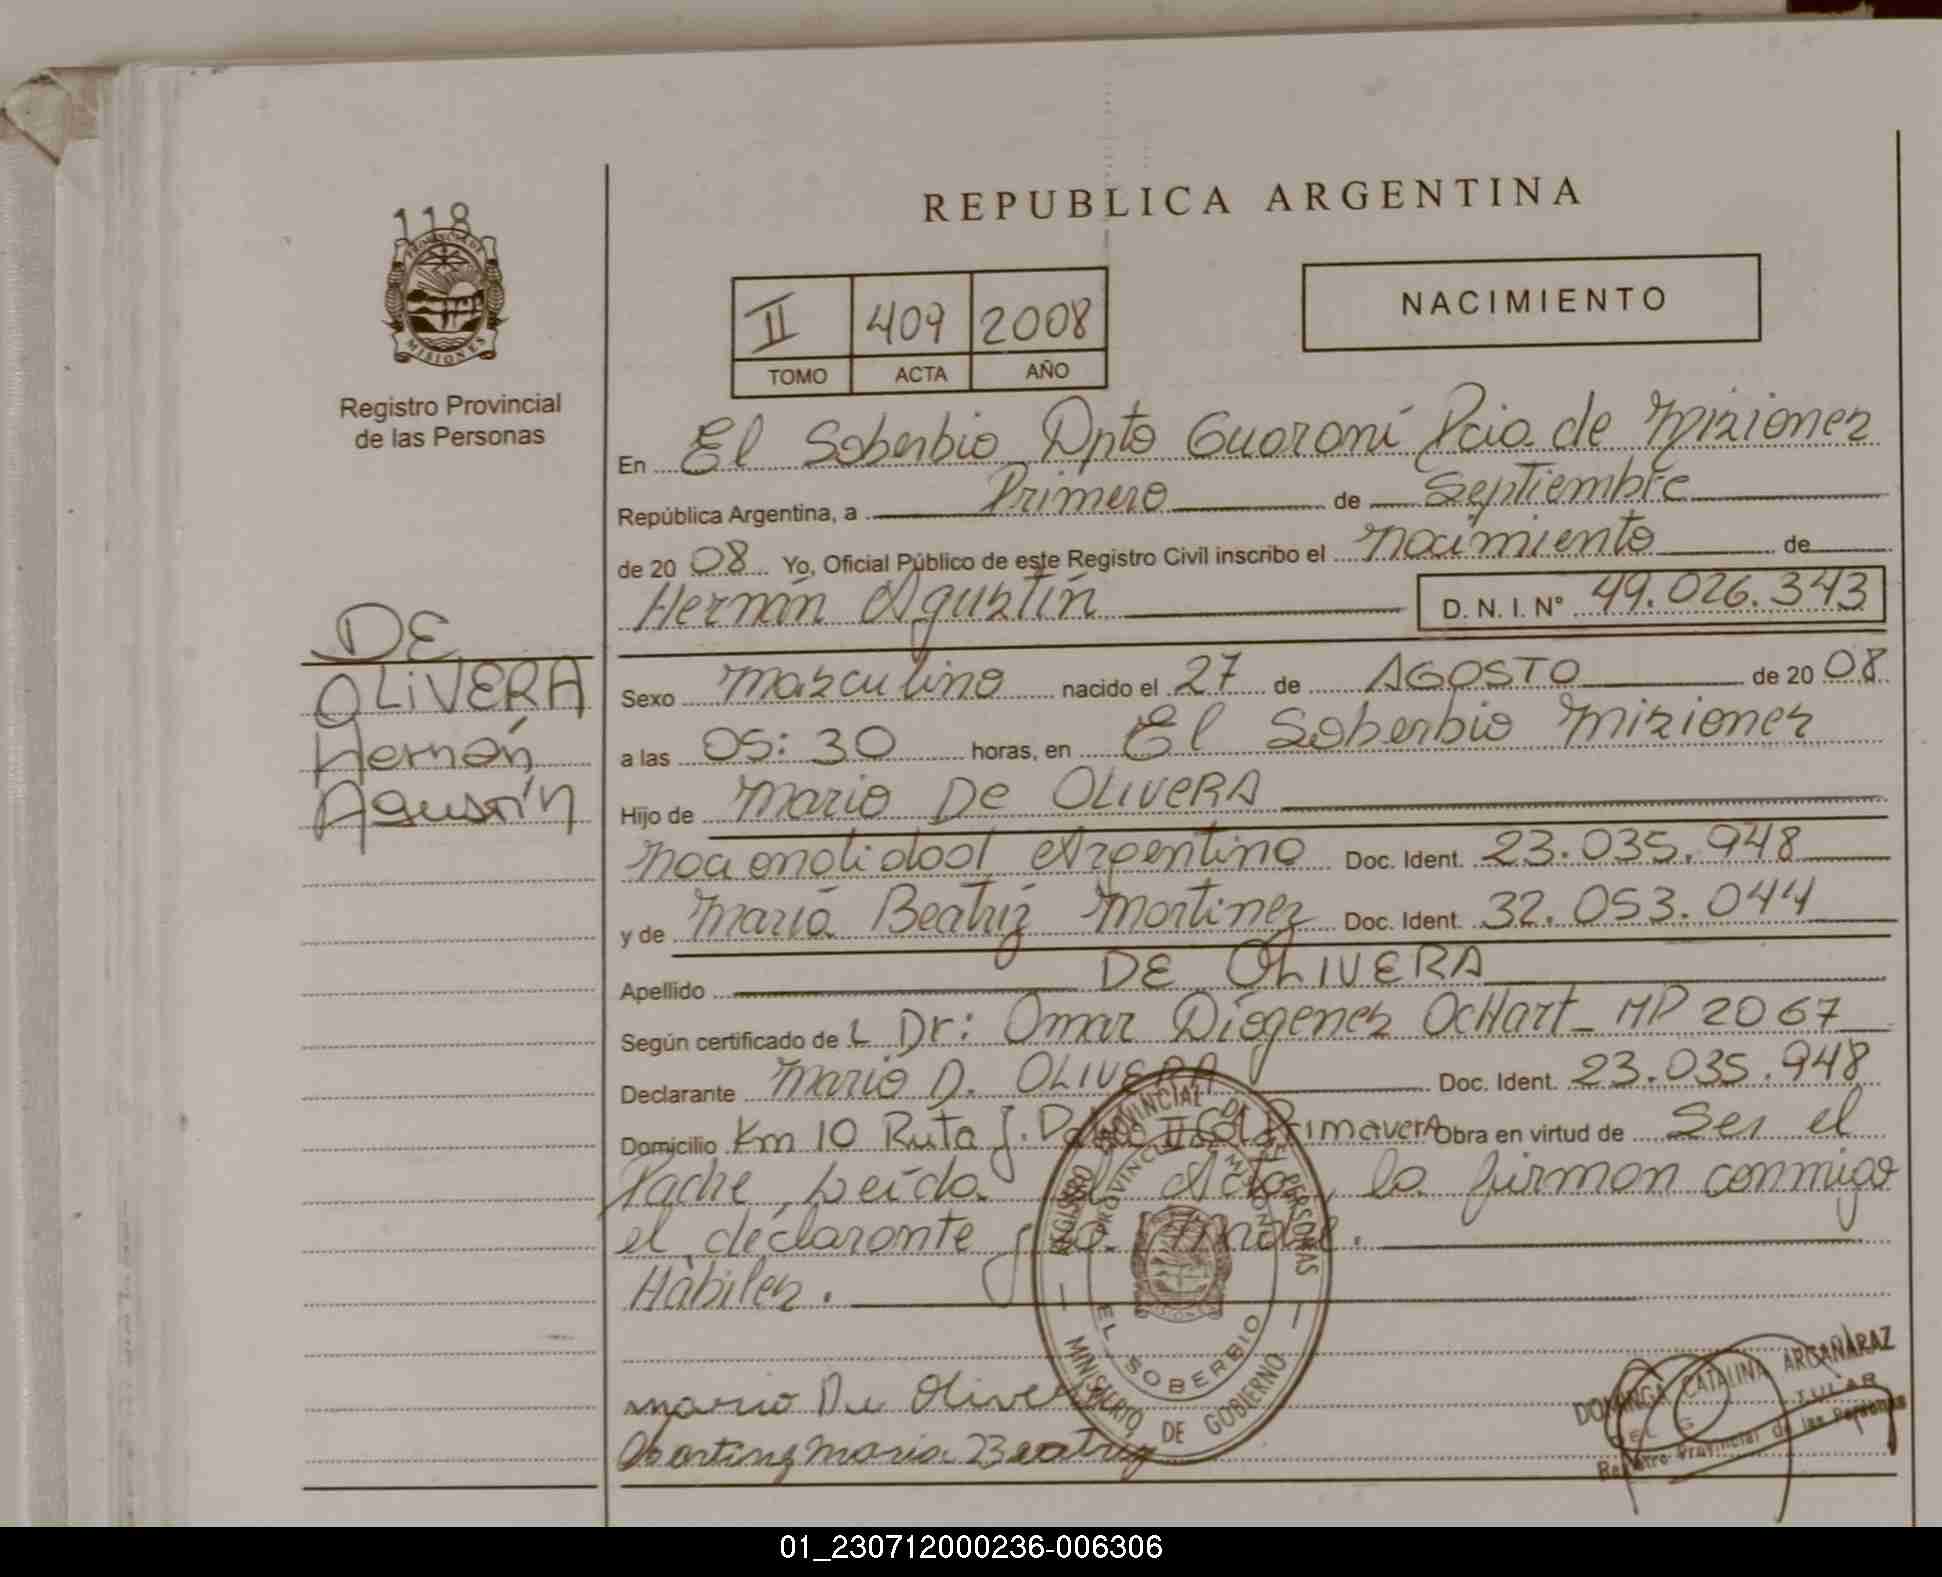 118
PROVINCIA DE
MISIONES
Registro Provincial
de las Personas
REPUBLICA ARGENTINA
II 409 2008
TOMO ACTA AÑO
NACIMIENTO
En El Soberbio Dpto Guaraní Pcia. de Misiones
República Argentina, a Primero de Septiembre
de 2008 Yo, Oficial Público de este Registro Civil inscribo el nacimiento de
Hernán Agustín D. N. I. Nº 49.026.343
DE
OLIVERA
Hernán
Agustín
Sexo masculino nacido el 27 de AGOSTO de 2008
a las 05:30 horas, en El Soberbio Misiones
Hijo de Mario De OLIVERA
nacionalidad Argentino Doc. Ident. 23.035.948
y de María Beatriz Martinez Doc. Ident. 32.053.044
Apellido DE OLIVERA
Según certificado de L Dr: Omar Diógenes OcHart - MP 2067
Declarante Mario D. OLIVERA Doc. Ident. 23.035.948
Domicilio Km 10 Ruta J. II Col Primavera Obra en virtud de Ser el
Padre, Leída el Acta, la firman conmigo
el declarante y la madre.
Hábiles.
REGISTRO PROVINCIAL DE LAS PERSONAS
PROVINCIA DE MISIONES
EL SOBERBIO
MINISTERIO DE GOBIERNO
Mario De Olivera
Martinez Maria Beatriz
DOMINGA CATALINA ARGAÑARAZ
Registro Provincial de las Personas
01_230712000236-006306